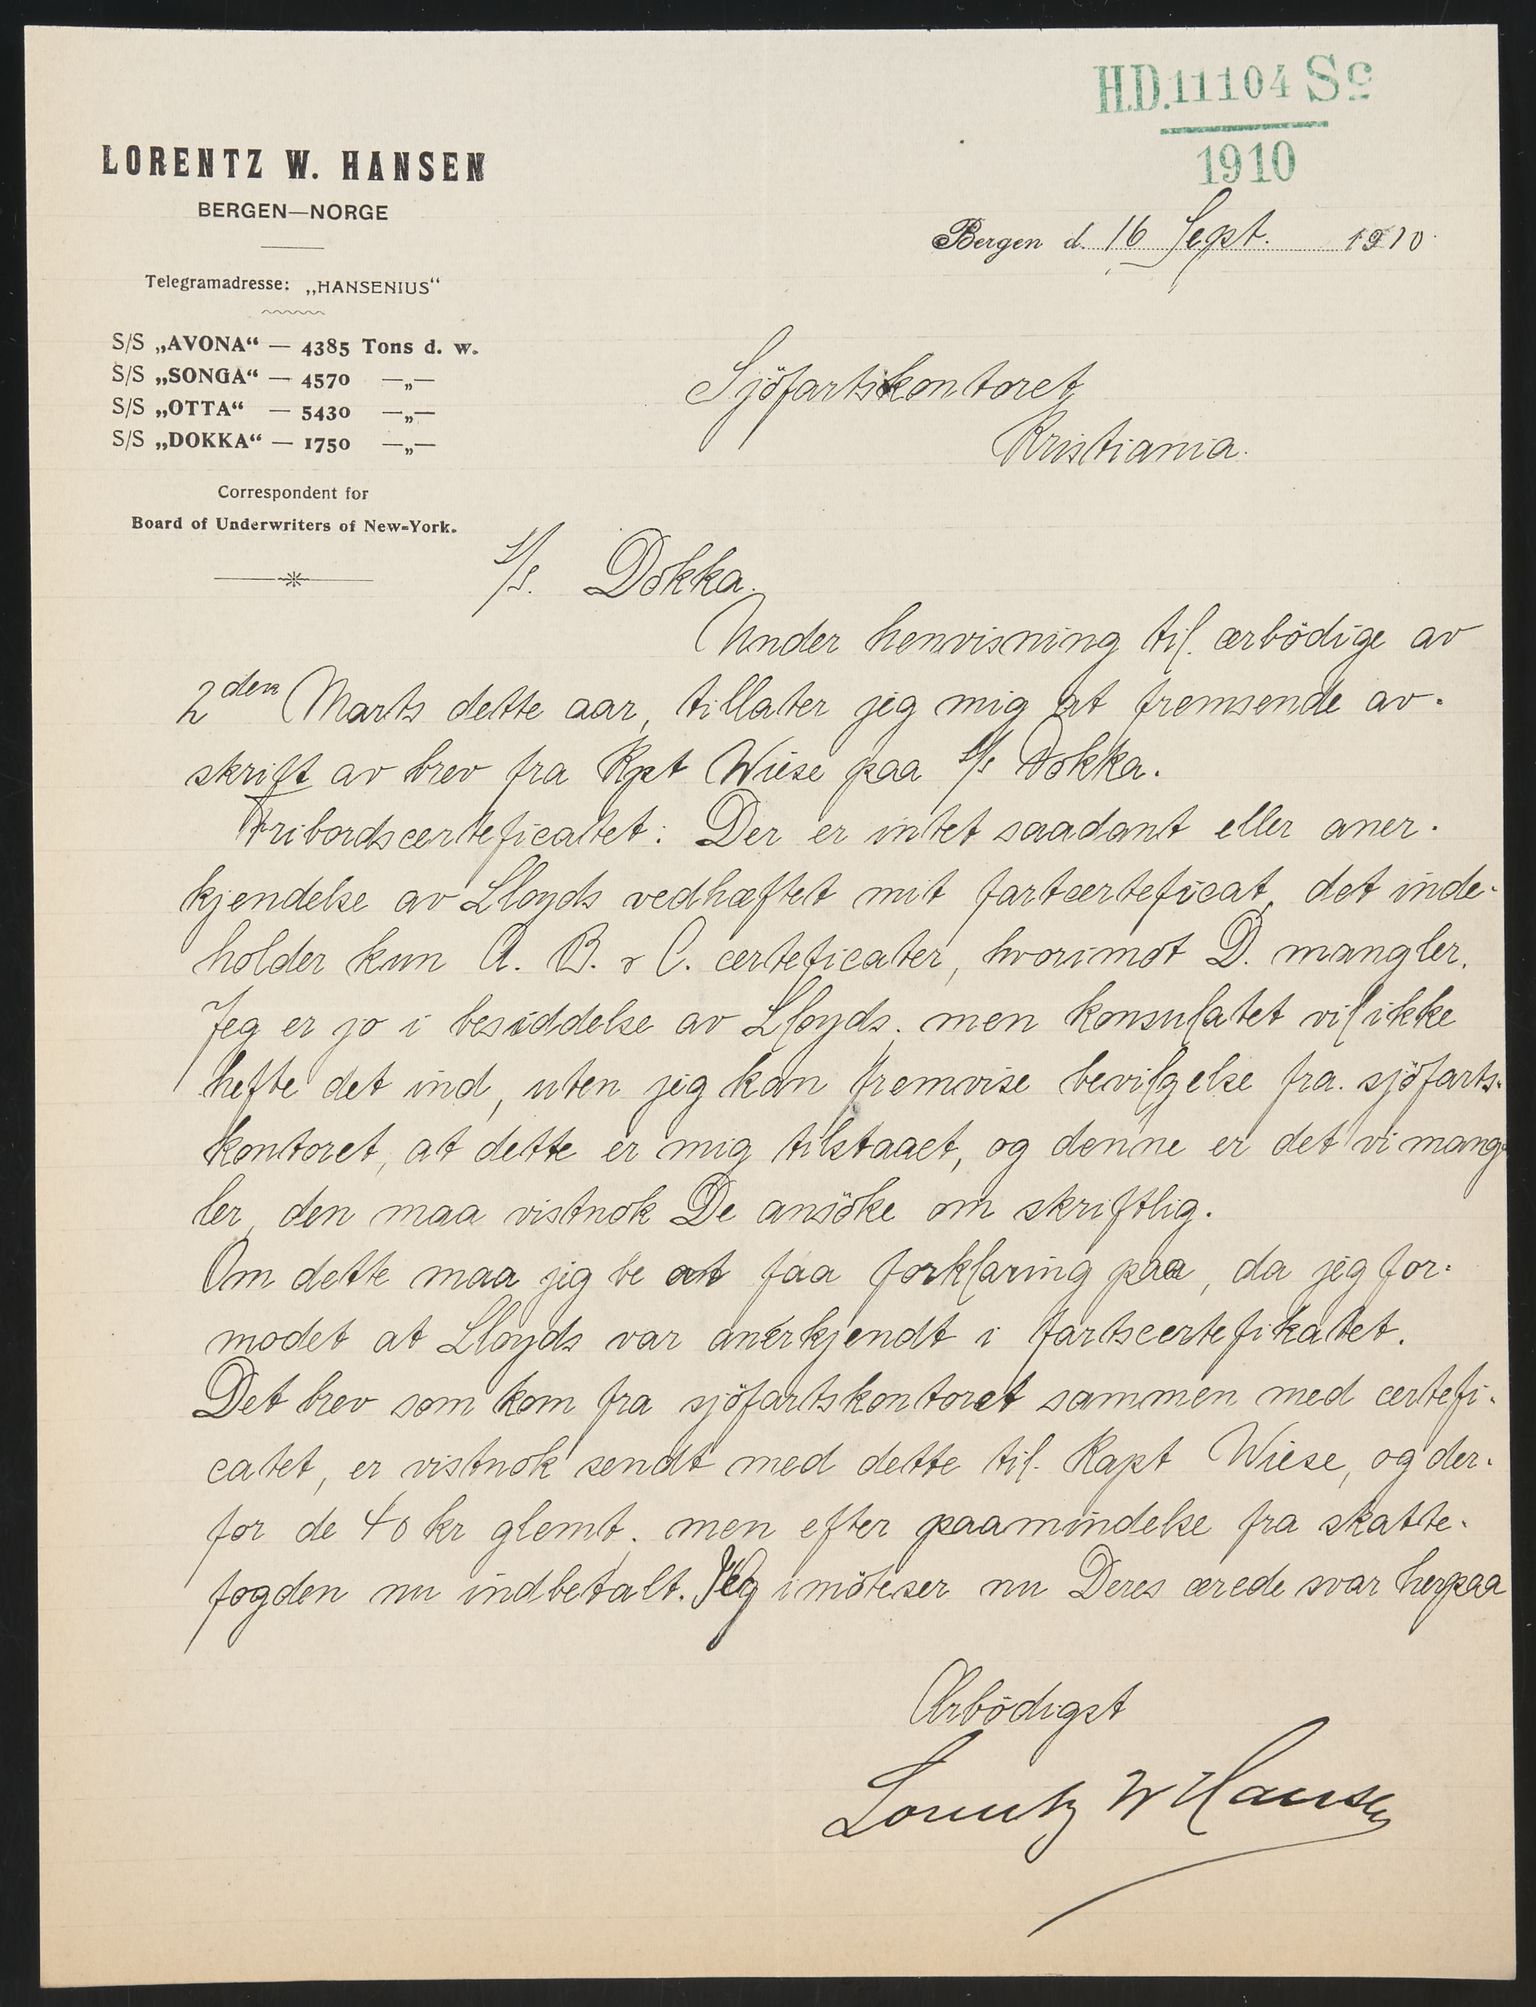 H.D.11104 Sc
1910
LORENTZ W. HANSEN
BERGEN—NORGE
Bergen d. 16 Sept. 1910.
Telegramadresse: „HANSENIUS“
S/S „AVONA“ — 4385 Tons d. w.
S/S „SONGA“ — 4570 —„—
S/S „OTTA“ — 5430 —„—
S/S „DOKKA“ — 1750 —„—
Correspondent for
Board of Underwriters of New-York.
Sjöfartskontoret
Kristiania.
S/S. Dokka.
Under henvisning til ærbödige av
2den Marts dette aar, tillater jeg mig at fremsende av-
skrift av brev fra Kpt Wiese paa S/s Dokka.
Fribordscerteficatet: Der er intet saadant eller aner-
kjendelse av Lloyds vedhæftet mit fartcerteficat, det inde-
holder kun A. B. & C. certeficater, hvorimot D. mangler.
Jeg er jo i besiddelse av Lloyds, men konsulatet vil ikke
hefte det ind, uten jeg kan fremvise bevilgelse fra sjöfarts-
kontoret, at dette er mig tilstaaet, og denne er det vi mang-
ler, den maa vistnok De ansöke om skriftlig.
Om dette maa jeg be at faa forklaring paa, da jeg for-
modet at Lloyds var anerkjendt i fartscertefikatet.
Det brev som kom fra sjöfartskontoret sammen med certefi-
catet, er vistnok sendt med dette til Kapt Wiese, og der-
for de 40 kr glemt, men efter paamindelse fra skatte-
fogden nu indbetalt. Jeg imöteser nu Deres ærede svar herpaa
Ærbödigst
Lorentz W Hansen